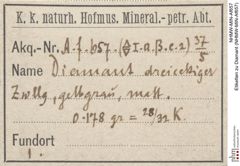 K. k. naturh. Hofmus. Mineral.-petr. Abt.
Akq.-Nr. A.f. 657. (I.a.β.c.2) 37/5
Name Diamant dreieckiger
Zwllg, gelbgrau, matt.
0.178 gr = 28/32 K.
Fundort
1.
NHMW-MIN-Af657
Etiketten zu Diamant (NHMW-MIN-Af657)